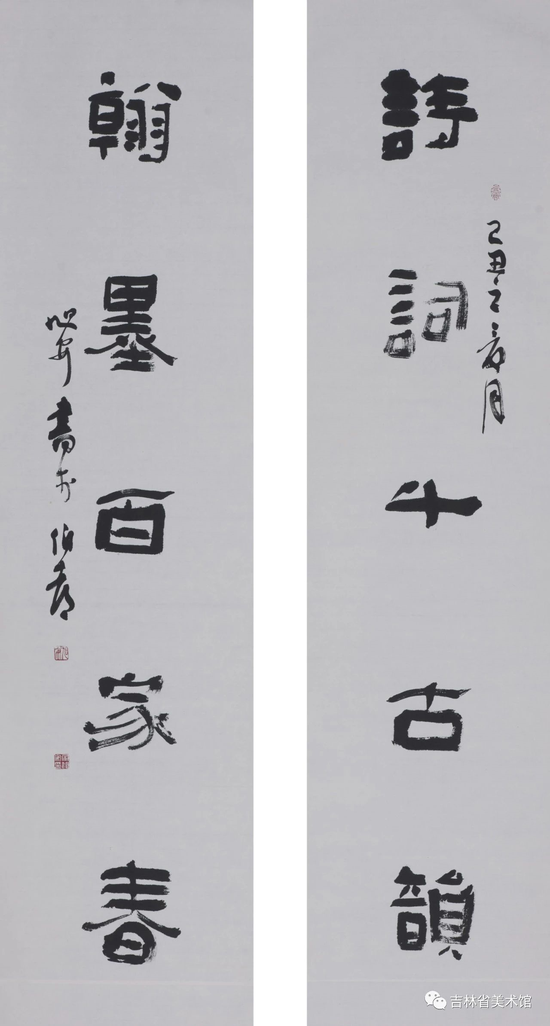 詩詞千古韻
己丑之春月
翰墨百家春
書於
吉林省美术馆